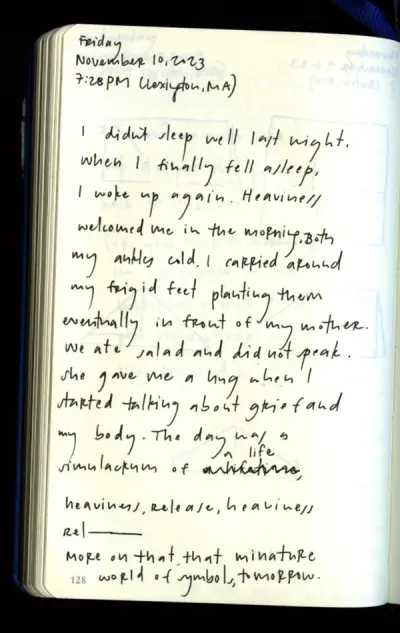 Friday
November 10, 2023
7:28 PM (Lexington, MA)
I didn't sleep well last night.
When I finally fell asleep,
I woke up again. Heaviness
welcomed me in the morning. Both
my ankles cold. I carried around
my frigid feet planting them
eventually in front of my mother.
We ate salad and did not speak.
She gave me a hug when I
started talking about grief and
my body. The day was a
simulacrum of a life
heaviness, release, heaviness
rel——
More on that, that minature
world of symbols, tomorrow.
128